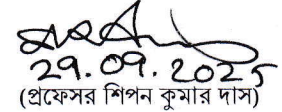 29.09.2025
(প্রফেসর শিপন কুমার দাস)